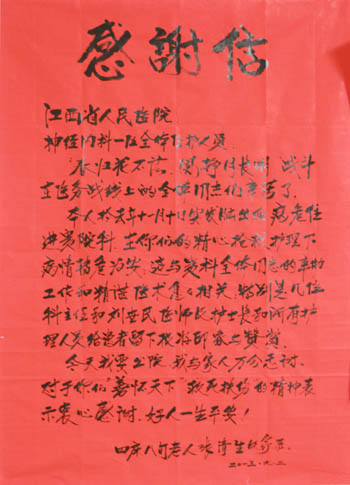 感謝信
江西省人民医院
神经内科一区全体医护人员
春归花不落 风静月长明 战斗
在医务战线上的全体同志们辛苦了
本人於去年十月十日突发脑出血 病危住
进贵院科 在你们的精心抢救护理下
病情转危为安 这与贵科全体同志的辛勤
工作和精湛医术息息相关 特别是几位
科主任和刘 医师 护士长和所有护
理人员给患者留下极好印象与赞赏
今天我要出院 我与家人万分感谢
对于你们 怀天下 救死扶伤的精神表
示衷心感谢 好人一生平安！
八旬老人张
二〇一三·九·